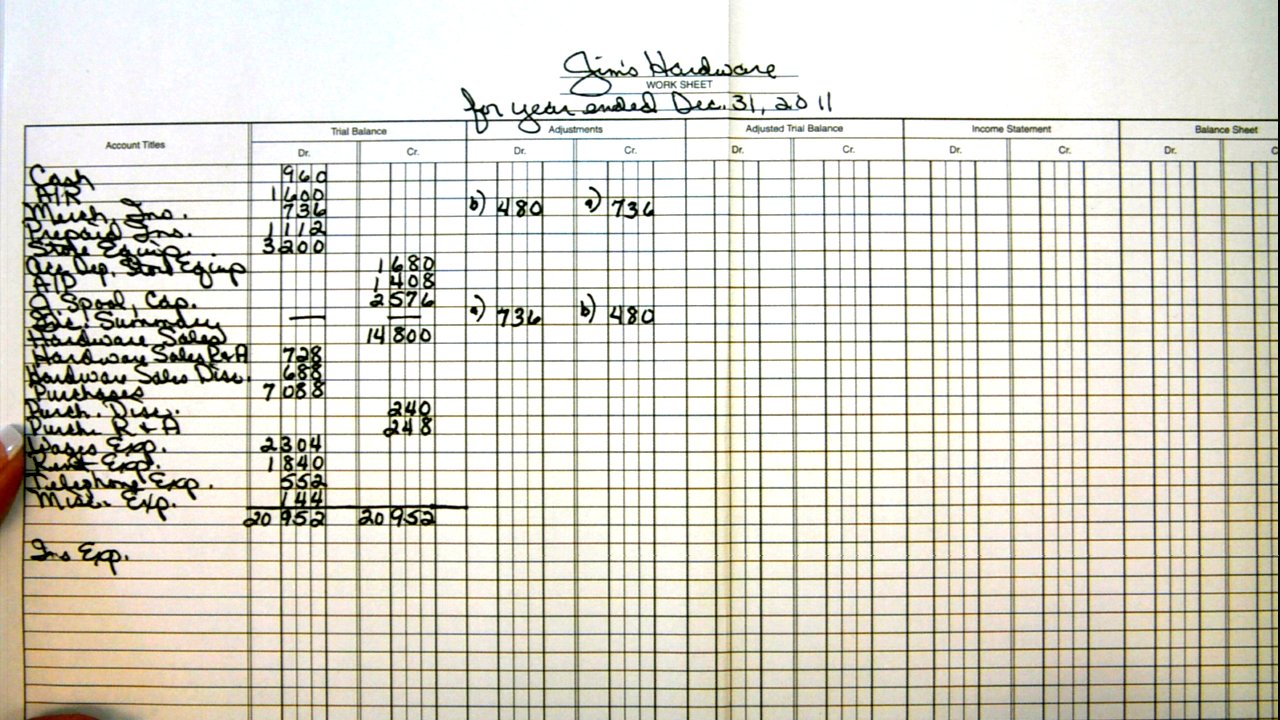 Jim's Hardware
WORK SHEET
for year ended Dec. 31, 2011
Account Titles Trial Balance Adjustments Adjusted Trial Balance Income Statement Balance Sheet
Dr. Cr. Dr. Cr. Dr. Cr. Dr. Cr. Dr. C
Cash 960
A/R 1600
Merch. Ins. 736 b) 480 a) 736
Prepaid Ins. 1112
Store Equip. 3200
Acc. Dep. Store Equip 1680
A/P 1408
J. Spool, Cap. 2576
Inc. Summary — — a) 736 b) 480
Hardware Sales 14800
Hardware Sales R&A 728
Hardware Sales Disc. 688
Purchases 7088
Purch. Disc. 240
Purch. R & A 248
Wages Exp. 2304
Rent Exp. 1840
Telephone Exp. 552
Misc. Exp. 144
20952 20952
Ins Exp.